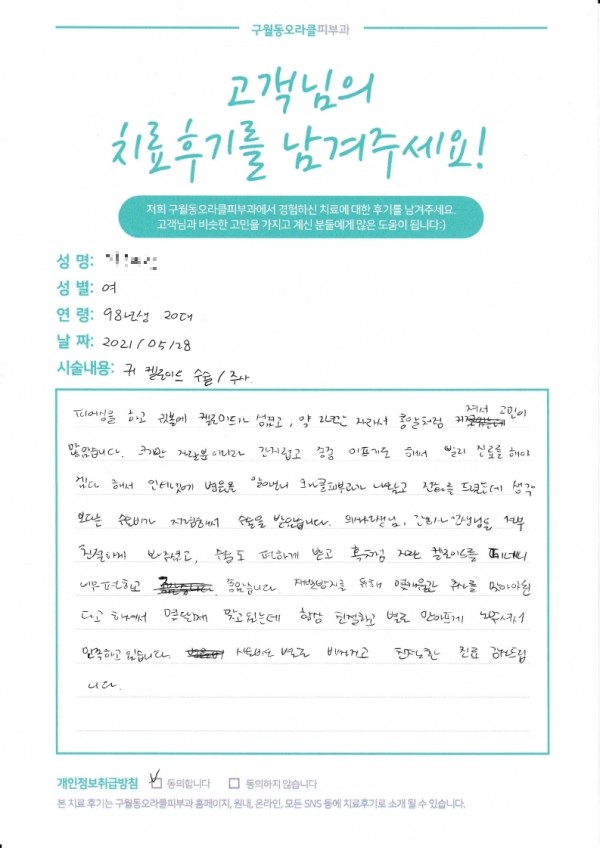 구월동오라클피부과
고객님의
치료후기를 남겨주세요!
저희 구월동오라클피부과에서 경험하신 치료에 대한 후기를 남겨주세요.
고객님과 비슷한 고민을 가지고 계신 분들에게 많은 도움이 됩니다:)
성 명:
성 별: 여
연 령: 98년생 20대
날 짜: 2021/05/28
시술내용: 귀 켈로이드 수술/주사.
피어싱을 하고 귓볼에 켈로이드가 생겼고, 약 2년간 자라서 콩알처럼 져서 고민이
많았습니다. 크기만 자랄뿐 아니라 간지럽고 종종 아프기도 해서 빨리 진료를 해야
겠다 해서 인터넷에 병원을 알아보니 오라클피부과가 나왔고 전화를 드렸는데 생각
보다는 수술비가 저렴해서 수술을 받았습니다. 의사선생님, 간호사선생님들 전부
친절하게 봐주셨고, 수술도 편하게 받고 혹처럼 자란 켈로이드를 떼어내니
너무 편하고 좋았습니다. 재발방지를 위해 몇개월간 주사를 맞아야된
다고 하셔서 몇달째 맞고있는데 항상 친절하고 별로 안아프게 놔주셔서
만족하고 있습니다. 시술비도 별로 비싸지않고 친절한 진료 감사드립
니다.
개인정보취급방침 동의합니다 동의하지 않습니다
본 치료 후기는 구월동오라클피부과 홈페이지, 원내, 온라인, 모든 SNS 등에 치료후기로 소개 될 수 있습니다.